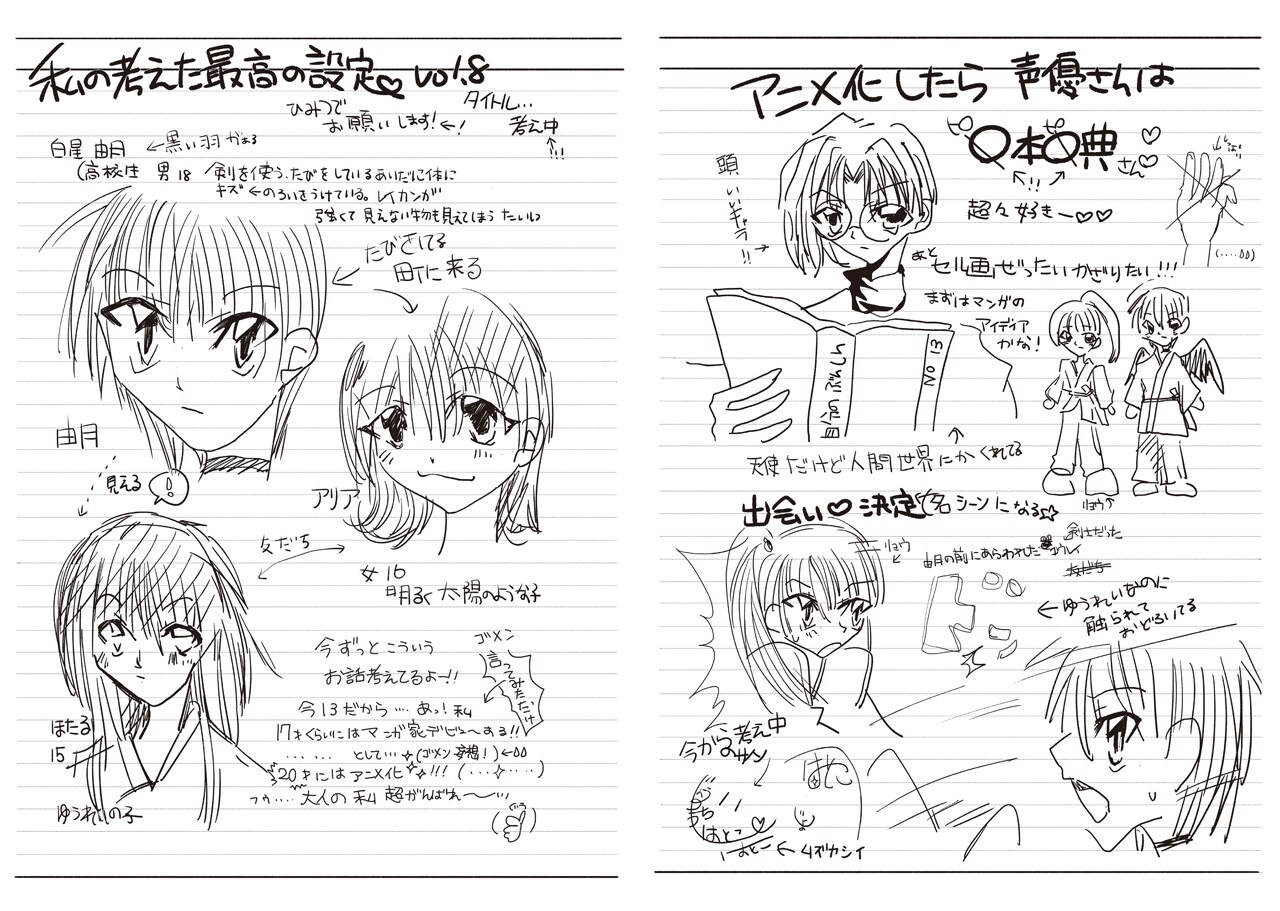 私の考えた最高の設定 vol.8
ひみつで
お願いします!←!
タイトル…
考え中
↑
!!!
白尾 由月 ←黒い羽がある
(高校生 男 18 剣を使う.たびをしているあいだに体に
キズ ←のろいをうけている。レイカンが
強くて 見えない物も見えてしまう たいしつ
たびをしてる
町に来る
由月
見える
!
アリア
友だち
女 16
明るく 太陽のような子
ほたる
15
ゆうれいの子
今ずっと こういう
お話考えてるよー!!
ゴメン
言ってみただけ
今13だから…. あっ! 私
17才くらいにはマンガ家デビューする!!
...... として…(ゴメン妄想!)←
20才にはアニメ化 !!!(……)
フゥ…. 大人の私 超がんばれ〜…
アニメ化したら 声優さんは
ピ ピ
〇本〇典さん
↑!!
超々好きー♡♡
頭いいキャラ!!→
あと
セル画ぜったいかざりたい!!!
まずはマンガの
アイディア
かな!
自分のぶんしん
No 13
天使だけど人間世界にかくれてる
リョウ↑
出会い♡決定(名シーンになる☆
リョウ
剣士だった
由月の前にあらわれた ユウレイ
友だち
←ゆうれいなのに
触られて
おどろいてる
今がら考え中
サン
はとこ
うち
はとこ
おとー ←ムズカシイ